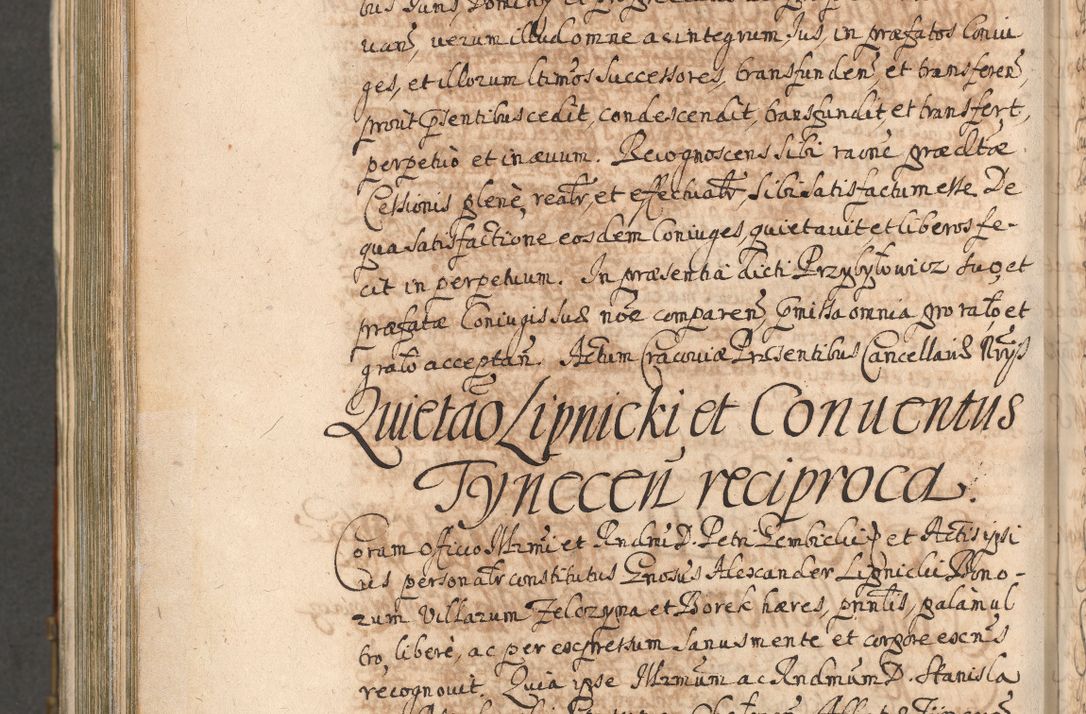 bus Juris, Dominy et
uan̄, verum illud omne ac integrum Jus, in præfatos Coniu
ges, et illorum ltimos Successores, transfunden̄, et transferen̄,
prout p̄sentibus cedit, condescendit, transfundit, et transfert,
perpetuò et in ævum. Recognoscens sibi raōne prædctæ
Cessionis plenè, realr̄, et effectualr̄, sibi satisfactum esse. De
qua satisfactione eosdem Coniuges, quietauit et liberos fe-
cit in perpetuum. In præsentia dicti Przybyłowicz suo, et
præfatæ Coniugis suæ nōe comparen̄, p̄missa omnia pro rato, et
grato acceptan̄. Actum Cracouiæ Præsentibus Cancellariæ Nr̄is
Quietaō Lipnicki et Conuentus
Tynecen̄ reciproca.
Coram Officio Illrmi et Rndmi D. Petri Gembicki Ep et Actis ipsi
us personalr̄ constitutus Gnosus Alexander Lipnicki Bono-
rum Villarum Zelczyna et Borek hæres, prin̄lis, palàm ul
tro, liberè, ac per expressum sanus mente et corpore exens
recognouit. Quia ipse Illrmum ac Rndmum D. Stanisla